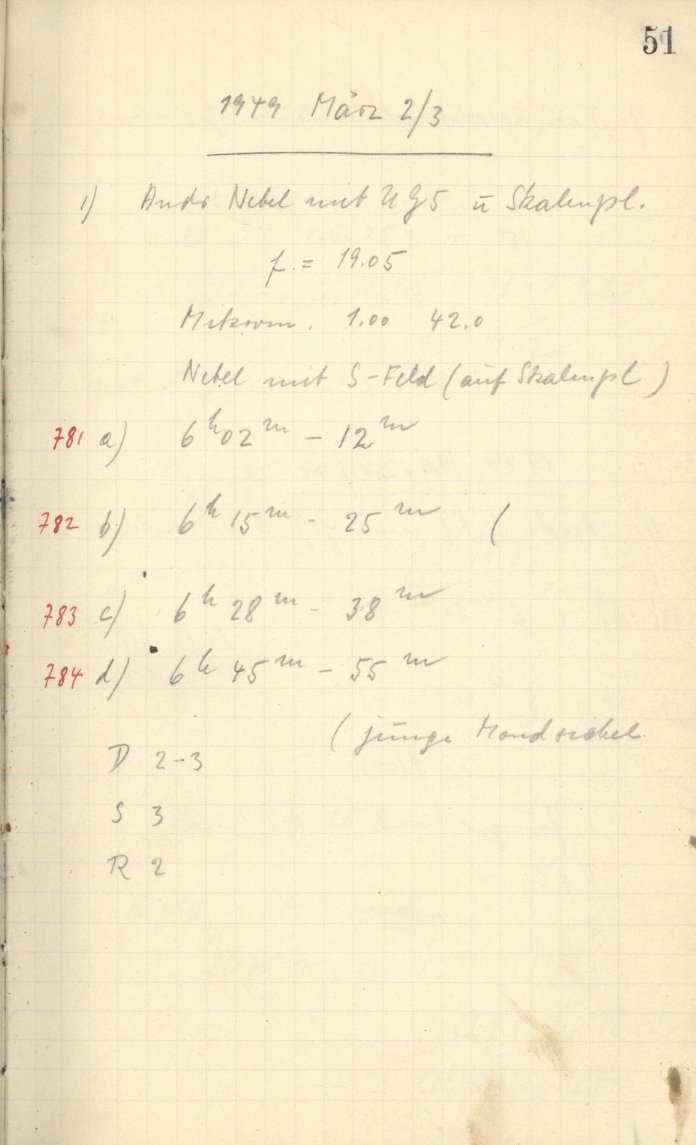 51
1949 März 2/3
1) Andr Nebel mit UG5 u Skalenpl.
f. = 19.05
Mikrom. 1.00 42.0
Nebel mit S-Feld (auf Skalenpl)
781 a) 6h02m - 12m
782 b) 6h 15m - 25m (
783 c) 6h 28m - 38m
784 d) 6h 45m - 55m
( junge Mondsichel
D 2-3
S 3
R 2